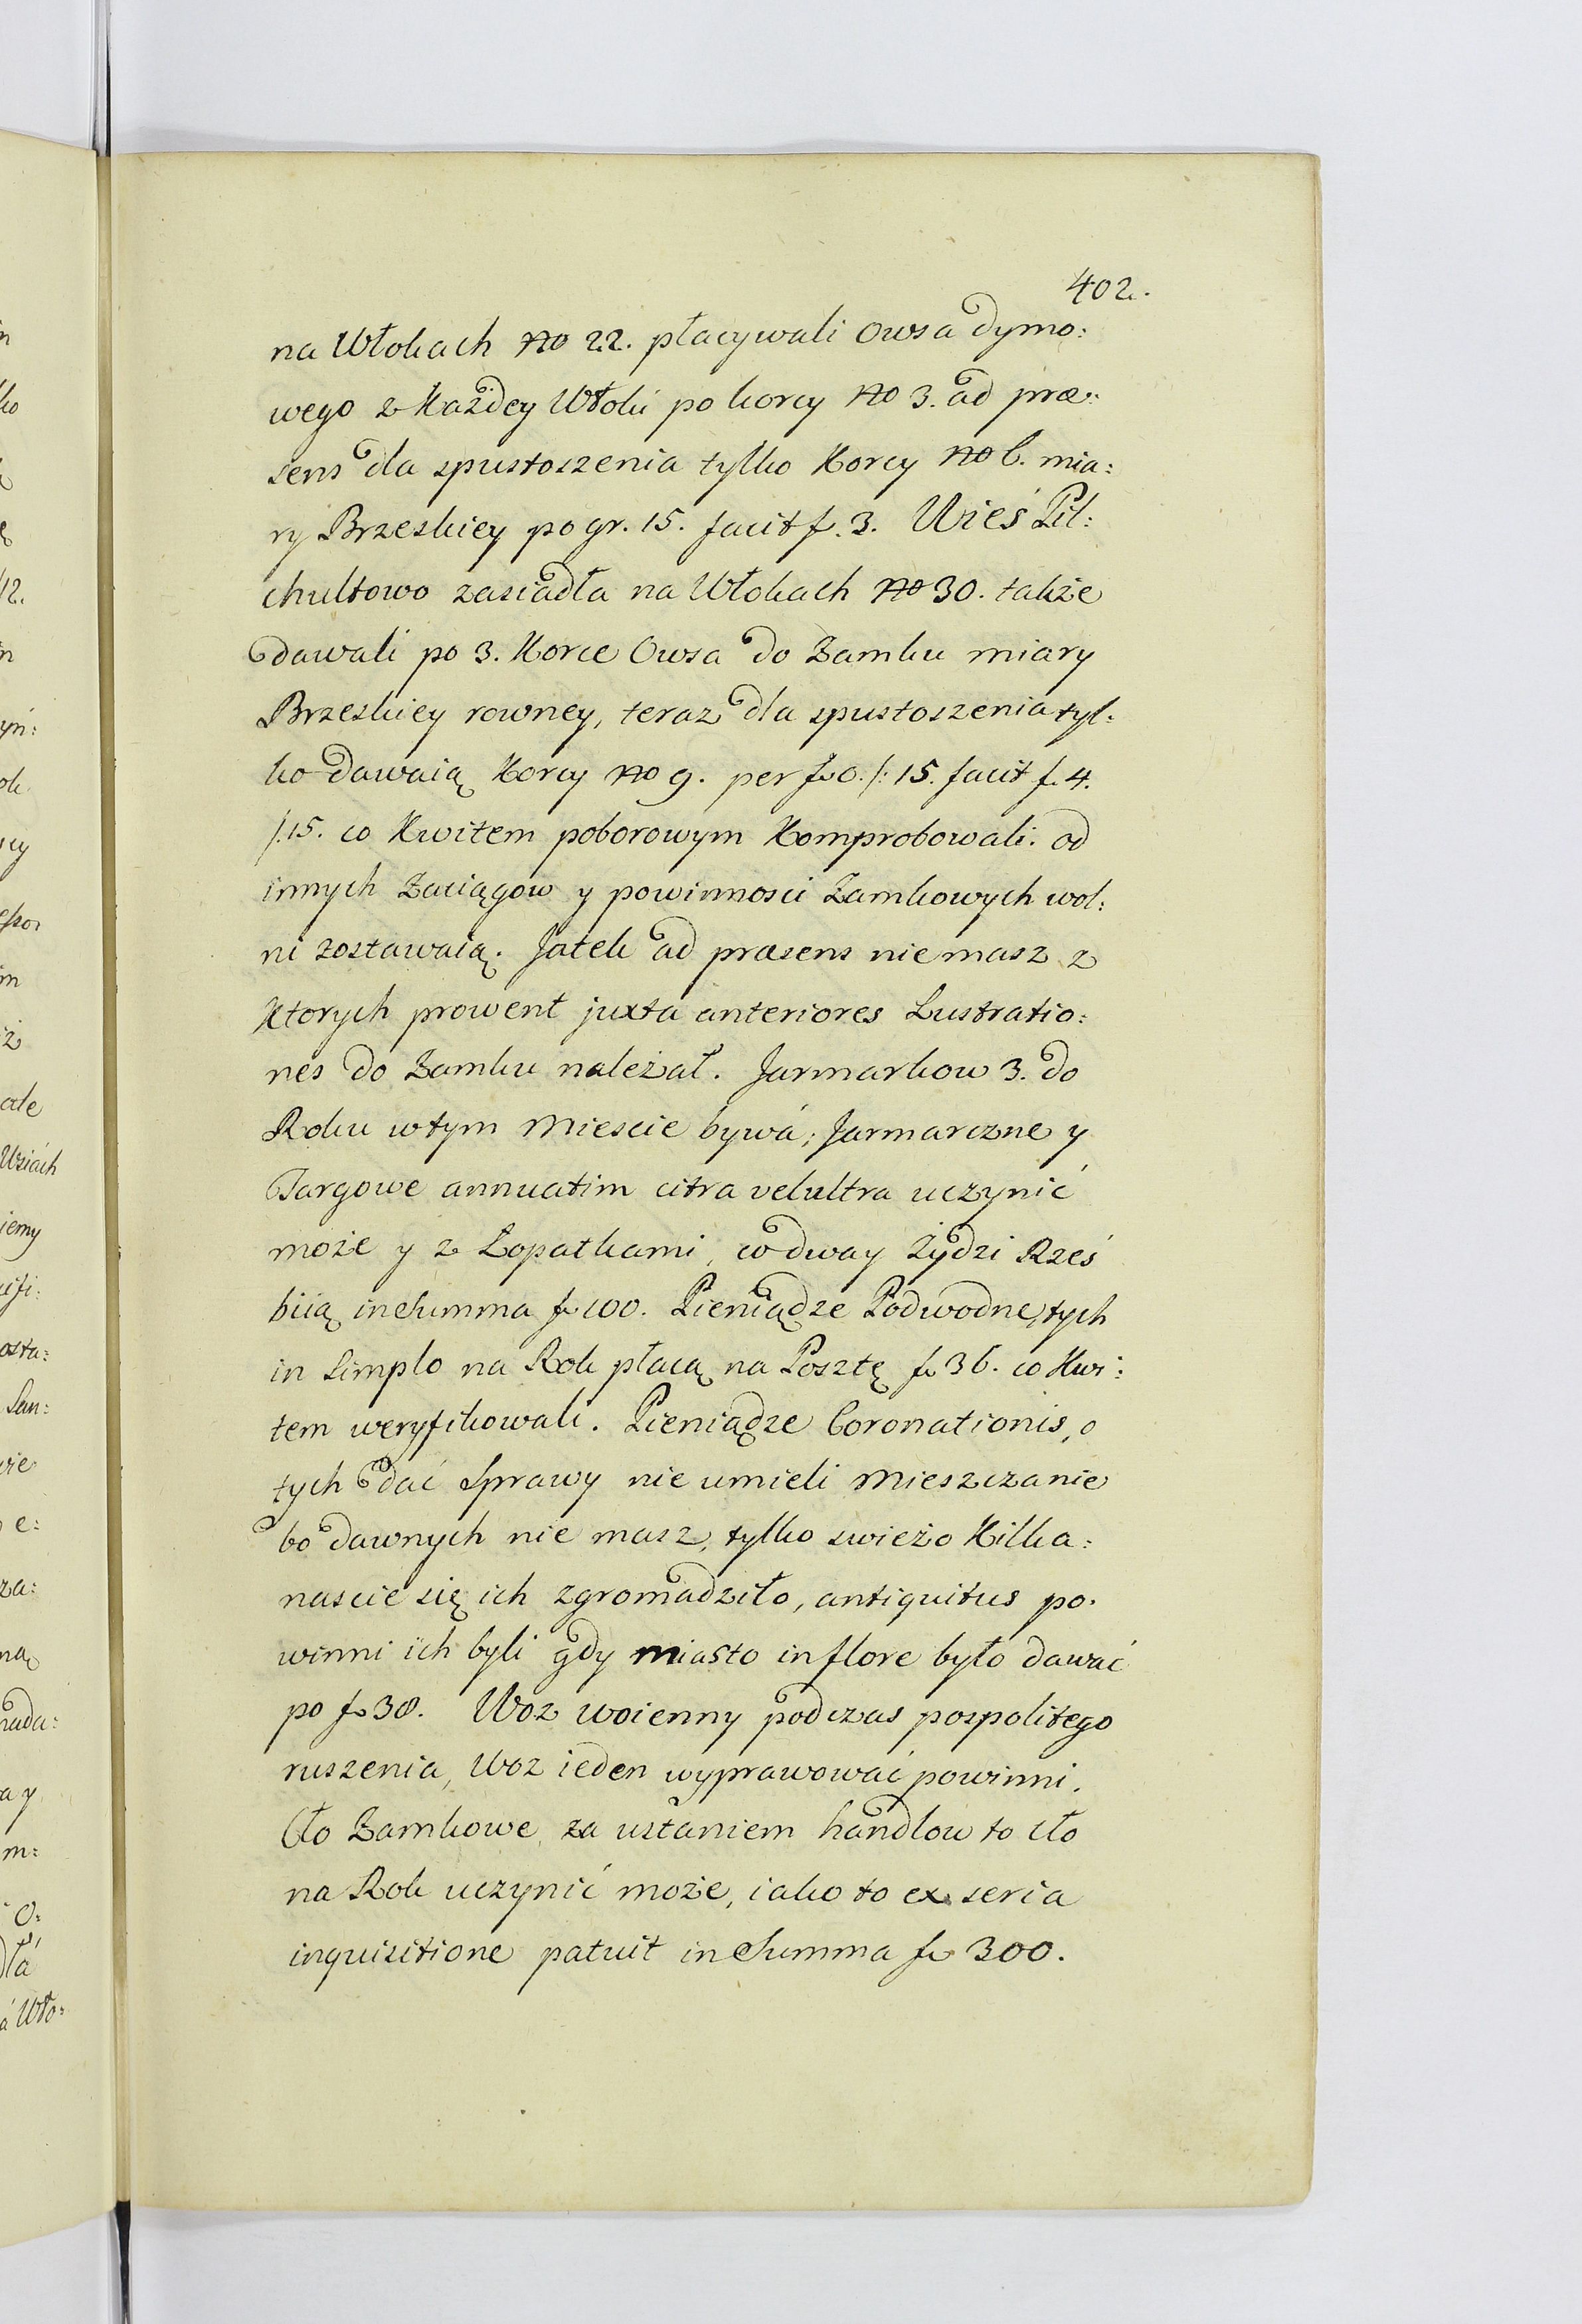 402.
na Włokach No 22. płacywali Owsa dymo:
wego z Każdey Włoki po korcy No 3. ad præ:
sens dla spustoszenia tylko Korcy No 6. mia:
ry Brzeskiey po gr. 15. facit f. 3. Wieś Pil:
chultowo zasiadła na Włokach No 30. także
dawali po 3. Korce Owsa do Zamku miary
Brzeskiey rowney, teraz dla spustoszenia tyl:
ko dawaią Korcy No 9. per f. 0. /: 15. facit f. 4.
/: 15. co Kwitem poborowym Komprobowali. od
innych Zaciągow y powinnosci Zamkowych wol:
ni zostawaią. Jatek ad præsens nie masz z
Ktorych prowent juxta anteriores Lustratio:
nes do Zamku należał. Jarmarkow 3. do
Roku w tym Miescie bywá; Jarmarczne y
Targowe annuatim citra vel ultra uczynić
może y z Łopatkami, co dway Żydzi Rześ
biią in Summa f. 100. Pieniądze Podwodne, tych
in Simplo na Rok płacą na Posztę f. 36. co Kwi:
tem weryfikowali. Pieniądze Coronationis, o
tych dać Sprawy nie umieli Mieszczanie
bo dawnych nie masz, tylko swieżo Kilka:
nascie się ich zgromadziło, antiquitus po:
winni ich byli gdy miasto in flore było dawać
po f. 38. Woz woienny podczas pospolitego
ruszenia, Woz ieden wyprawować powinni.
Cło Zamkowe, za ustaniem handlow to cło
na Rok uczynić może, iako to ex seria
inquisitione patuit in Summa f. 300.